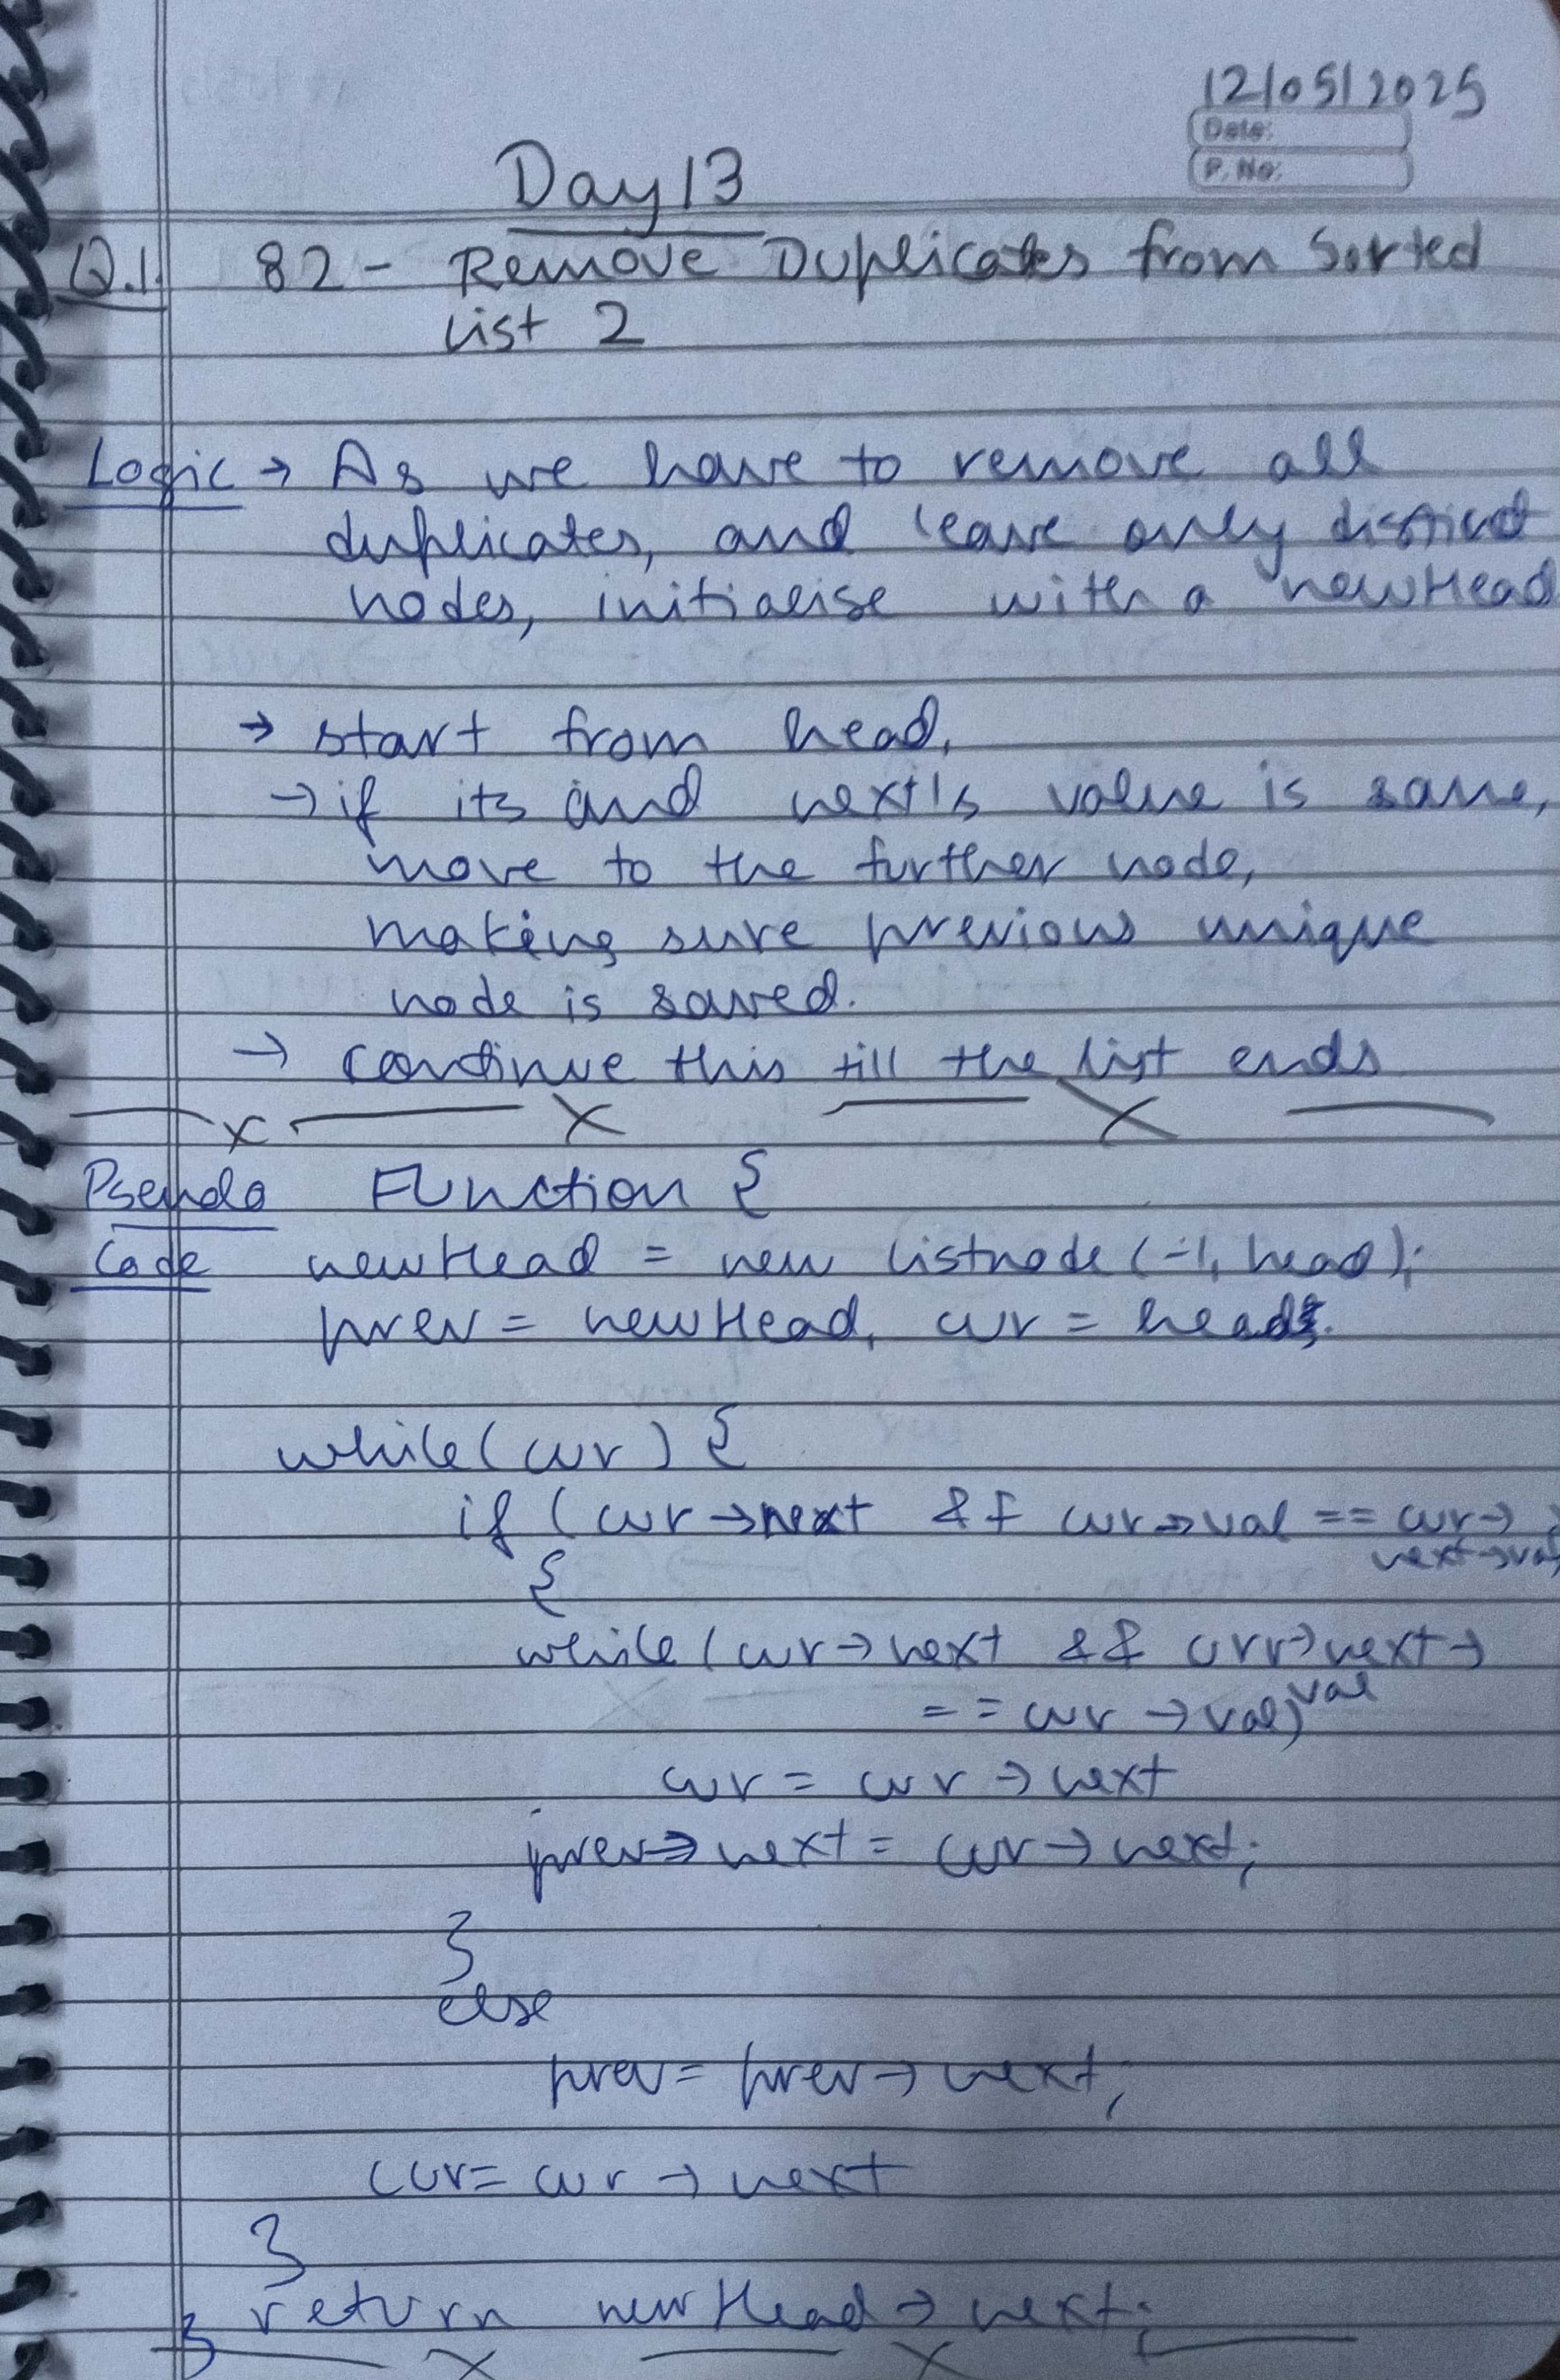 12/05/2025
Date:
P. No:
Day 13
Q.1. 82 - Remove Duplicates from Sorted
List 2
Logic → As we have to remove all
duplicates, and leave only distinct
nodes, initialise with a newHead
→ start from head,
→ if its and next's value is same,
move to the further node,
making sure previous unique
node is saved.
→ continue this till the list ends
x x x
Pseudo Function {
Code newHead = new listnode (-1, head);
prev = newHead, cur = head;
while(cur) {
if (cur→next && cur→val == cur→
next→val)
{
while(cur→next && curr→next→
val
== cur→val)
cur = cur→next
prev→next = cur→next;
}
else
prev = prev→next;
cur = cur→next
}
return newHead→next;
}
x x